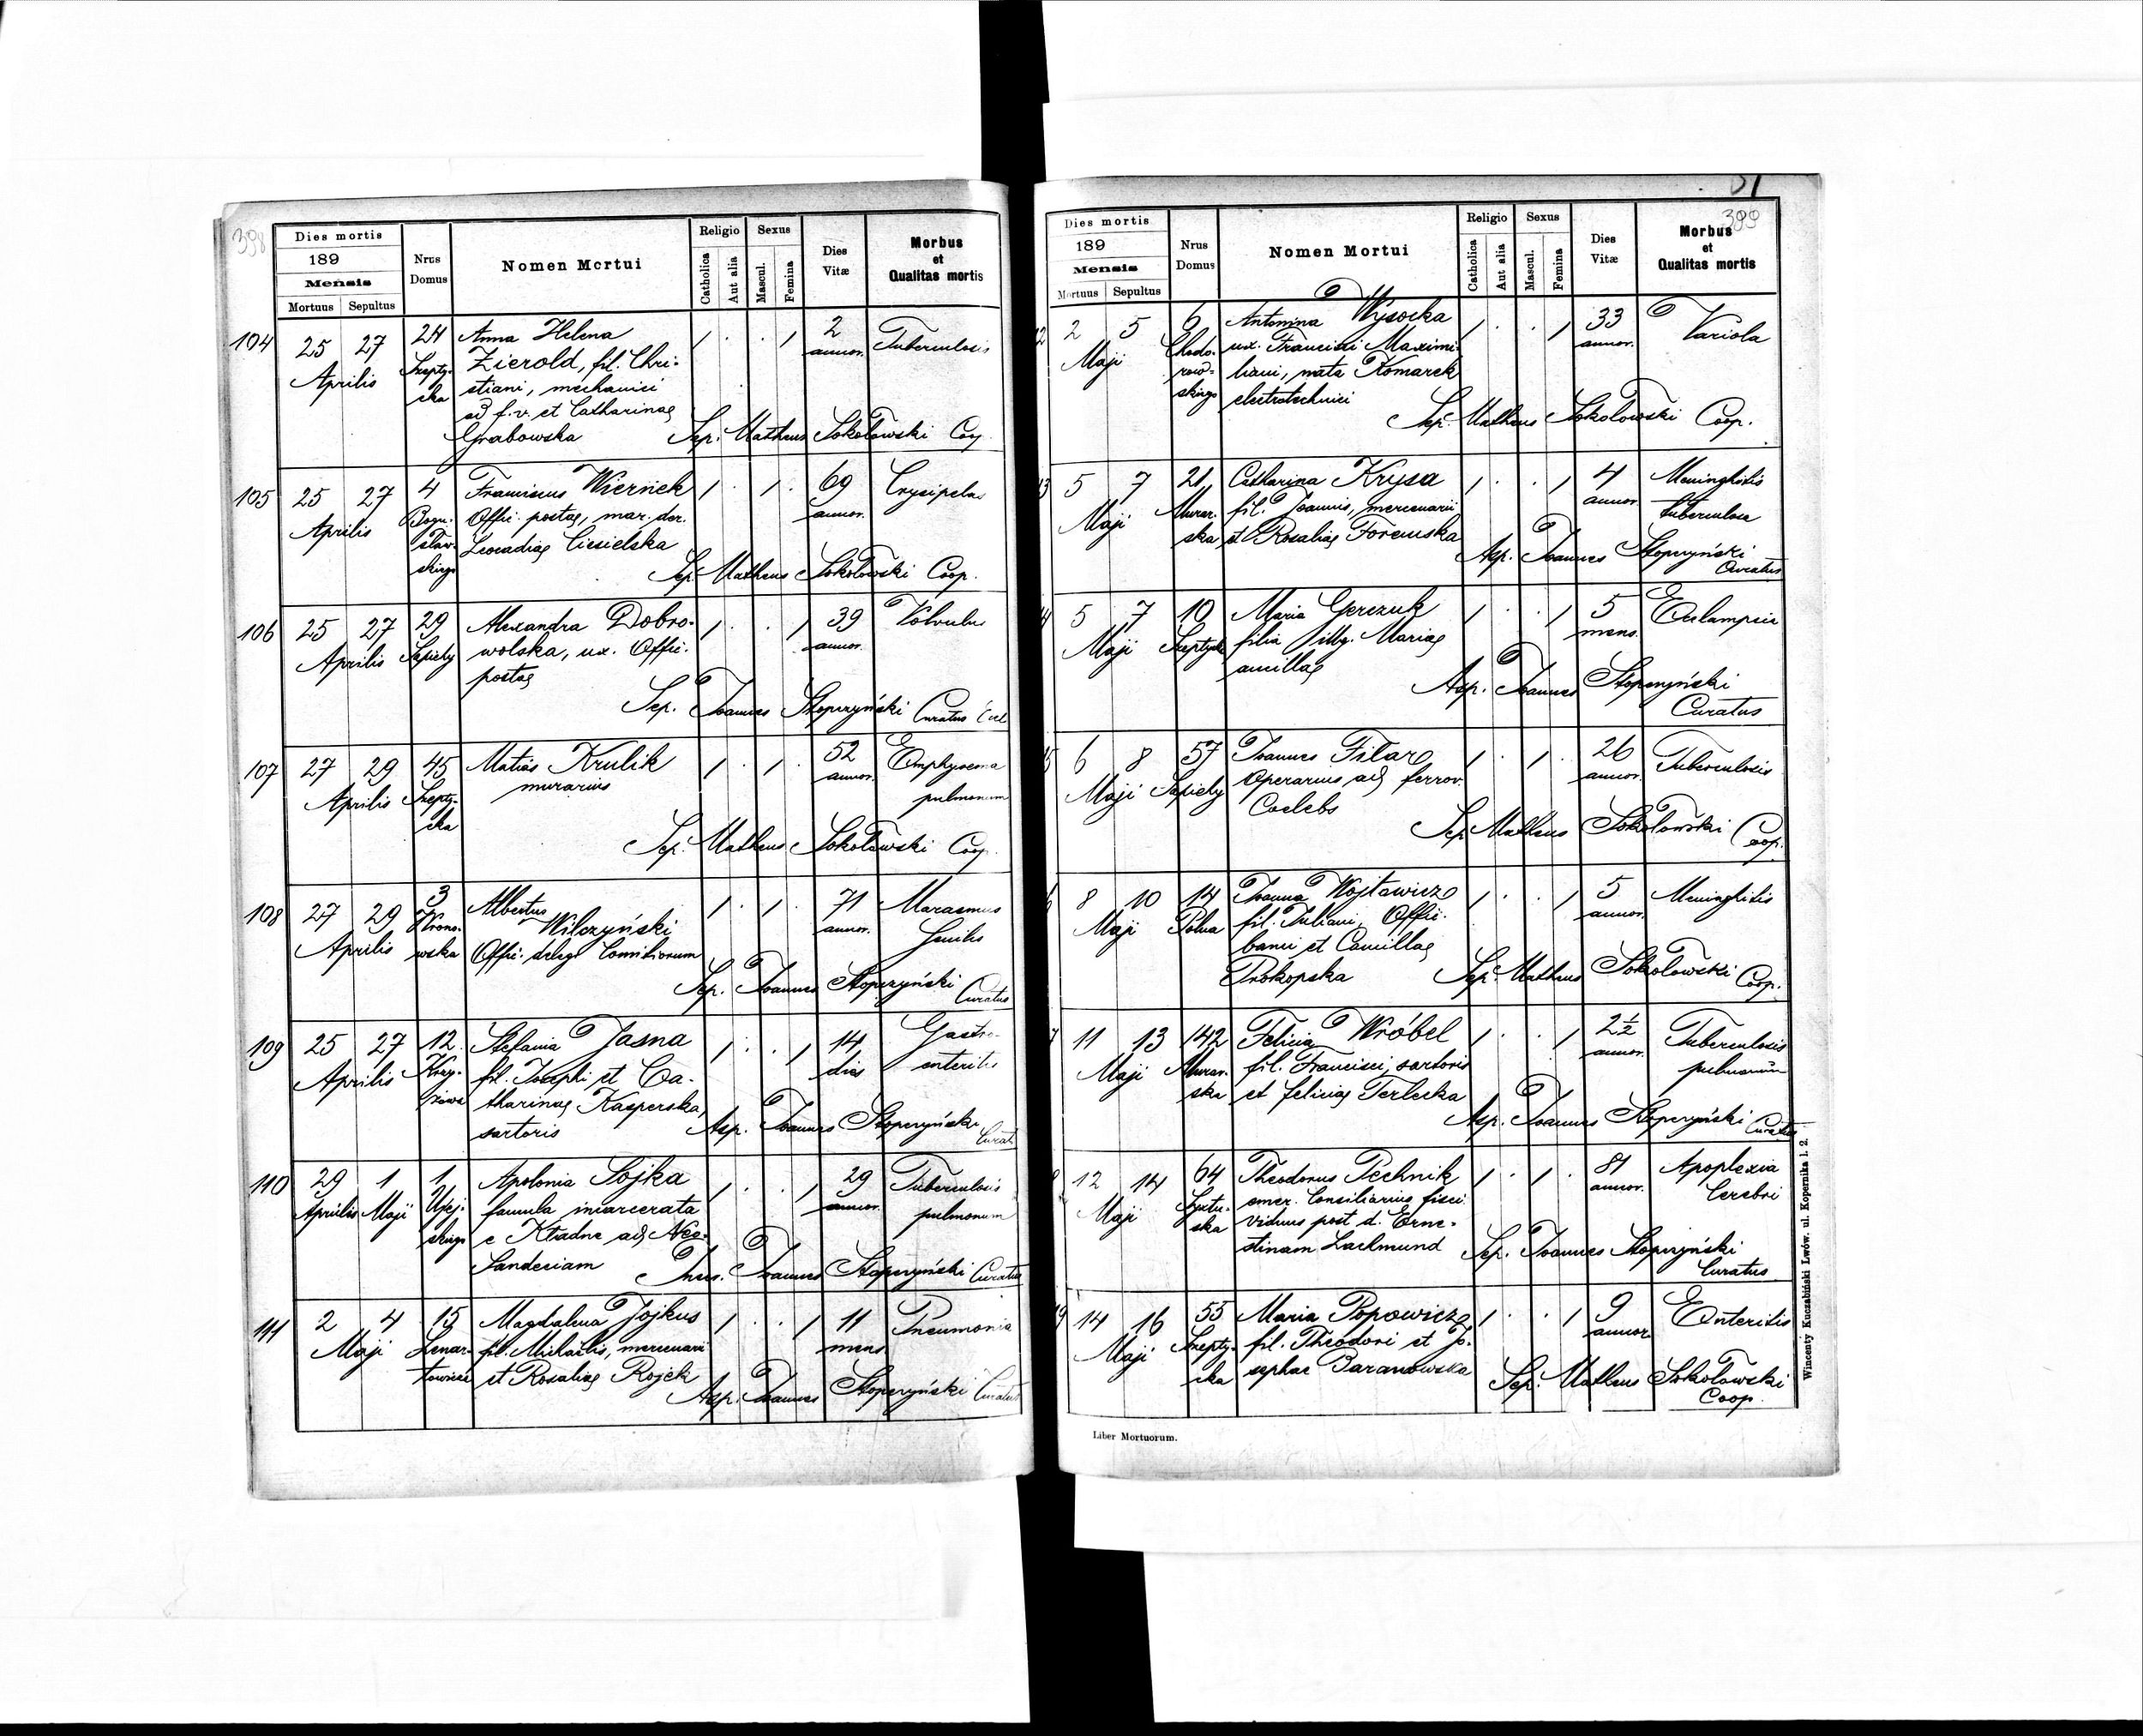 398
Dies mortis
189
Mensis
Mortuus Sepultus
Nrus
Domus
Nomen Mortui
Religio
Catholica
Aut alia
Sexus
Mascul.
Femina
Dies
Vitæ
Morbus
et
Qualitas mortis
104 25 27 Aprilis
24 Szepty-
cka
Anna Helena
Zierold, fil. Chri-
stiani, mechanici
ad f. v. et Catharinae
Grabowska
1 . . 1
2
annor.
Tuberculosis
Sep. Matheus Sokołowski Coop.
105 25 27 Aprilis
4
Bogu-
sław-
skiego
Franciscus Wiernek
Offic. postae, mar. der.
Leocadiae Ciesielska
1 . 1 .
69
annor.
Erysipelas
Sep. Matheus Sokołowski Coop.
106 25 27 Aprilis
29
Sapiehy
Alexandra Dobro-
wolska, ux. Offic.
postae
1 . . 1
39
annor.
Volvulus
Sep. Joannes Stopczyński Curatus
107 27 29 Aprilis
45
Szepty-
cka
Matias Krulik
murarius
1 . 1 .
52
annor.
Emphysema
pulmonum
Sep. Matheus Sokołowski Coop.
108 27 29 Aprilis
3
wska
Albertus
Wilczyński
Offic. deleg. Comitiorum
1 . 1 .
71
annor.
Marasmus
Senilis
Sep. Joannes Stopczyński Curatus
109 25 27 Aprilis
12
Krzy-
żowa
Stefania Jasna
fil. Josephi et Ca-
tharinae Kasperska,
sartoris
1 . . 1
14
dies
Gastro-
enteritis
Asp. Joannes Stopczyński Curat
110 29 1
Aprilis Maji
1
Ujej-
skiego
Apolonia Sojka
famula incarcerata
e Kładne ad Neo-
Sandeciam
1 . . 1
29
annor.
Tuberculosis
pulmonum
Joannes Stopczyński Curatus
111 2 4
Maji
15
Lenar-
towicza
Magdalena Jojkus
fil. Michaelis, mercenarii
et Rosaliae Rojek
1 . . 1
11
mens
Pneumonia
Asp. Joannes Stopczyński Curatus
51
399
Dies mortis
189
Mensis
Mortuus Sepultus
Nrus
Domus
Nomen Mortui
Religio
Catholica
Aut alia
Sexus
Mascul.
Femina
Dies
Vitæ
Morbus
et
Qualitas mortis
2 2 5
Maji
6
Chodo-
row-
skiego
Antonina Wysocka
ux. Francisci Maximi-
liani, nata Komarek
electrotechnici
1 . . 1
33
annor.
Variola
Sep. Matheus Sokołowski Coop.
3 5 7
Maji
21
Murar-
ska
Catharina Krysa
fil. Joannis, mercenarii
et Rosaliae Foremska
1 . . 1
4
annor.
Meninghitis
tuberculosa
Asp. Joannes Stopczyński
Curatus
4 5 7
Maji
10
Maria Gerczuk
filia illeg. Mariae
ancillae
1 . . 1
5
mens.
Eclampsia
Asp. Joannes Stopczyński
Curatus
5 6 8
Maji
57
Sapiehy
Joannes Filar
Operarius ad ferrov.
Coelebs
1 . 1 .
26
annor.
Tuberculosis
Sep. Matheus Sokołowski Coop.
6 8 10
Maji
14
Polna
Joanna Wojtowicz
fil. Juliani, Offic.
banci et Camillae
Prokopska
1 . . 1
5
annor.
Meninghitis
Sep. Matheus Sokołowski Coop.
7 11 13
Maji
142
Murar-
ska
Felicia Wróbel
fil. Francisci, sartoris
et feliciae Terlecka
1 . . 1
2½
annor.
Tuberculosis
pulmonum
Asp. Joannes Stopczyński Curatus
8 12 14
Maji
64
ska
Theodorus Technik
emer. Consiliarius fisci
viduus post d. Erne-
stinam Lachmund
1 . 1 .
81
annor.
Apoplexia
Cerebri
Sep. Joannes Stopczyński
Curatus
9 14 16
Maji
55
Szepty-
cka
Maria Popowicz
fil. Theodori et Jo-
sephae Baranowska
1 . . 1
9
annor
Enteritis
Sep. Matheus Sokołowski
Coop.
Liber Mortuorum.
Wincenty Kuczabiński Lwów. ul. Kopernika l. 2.